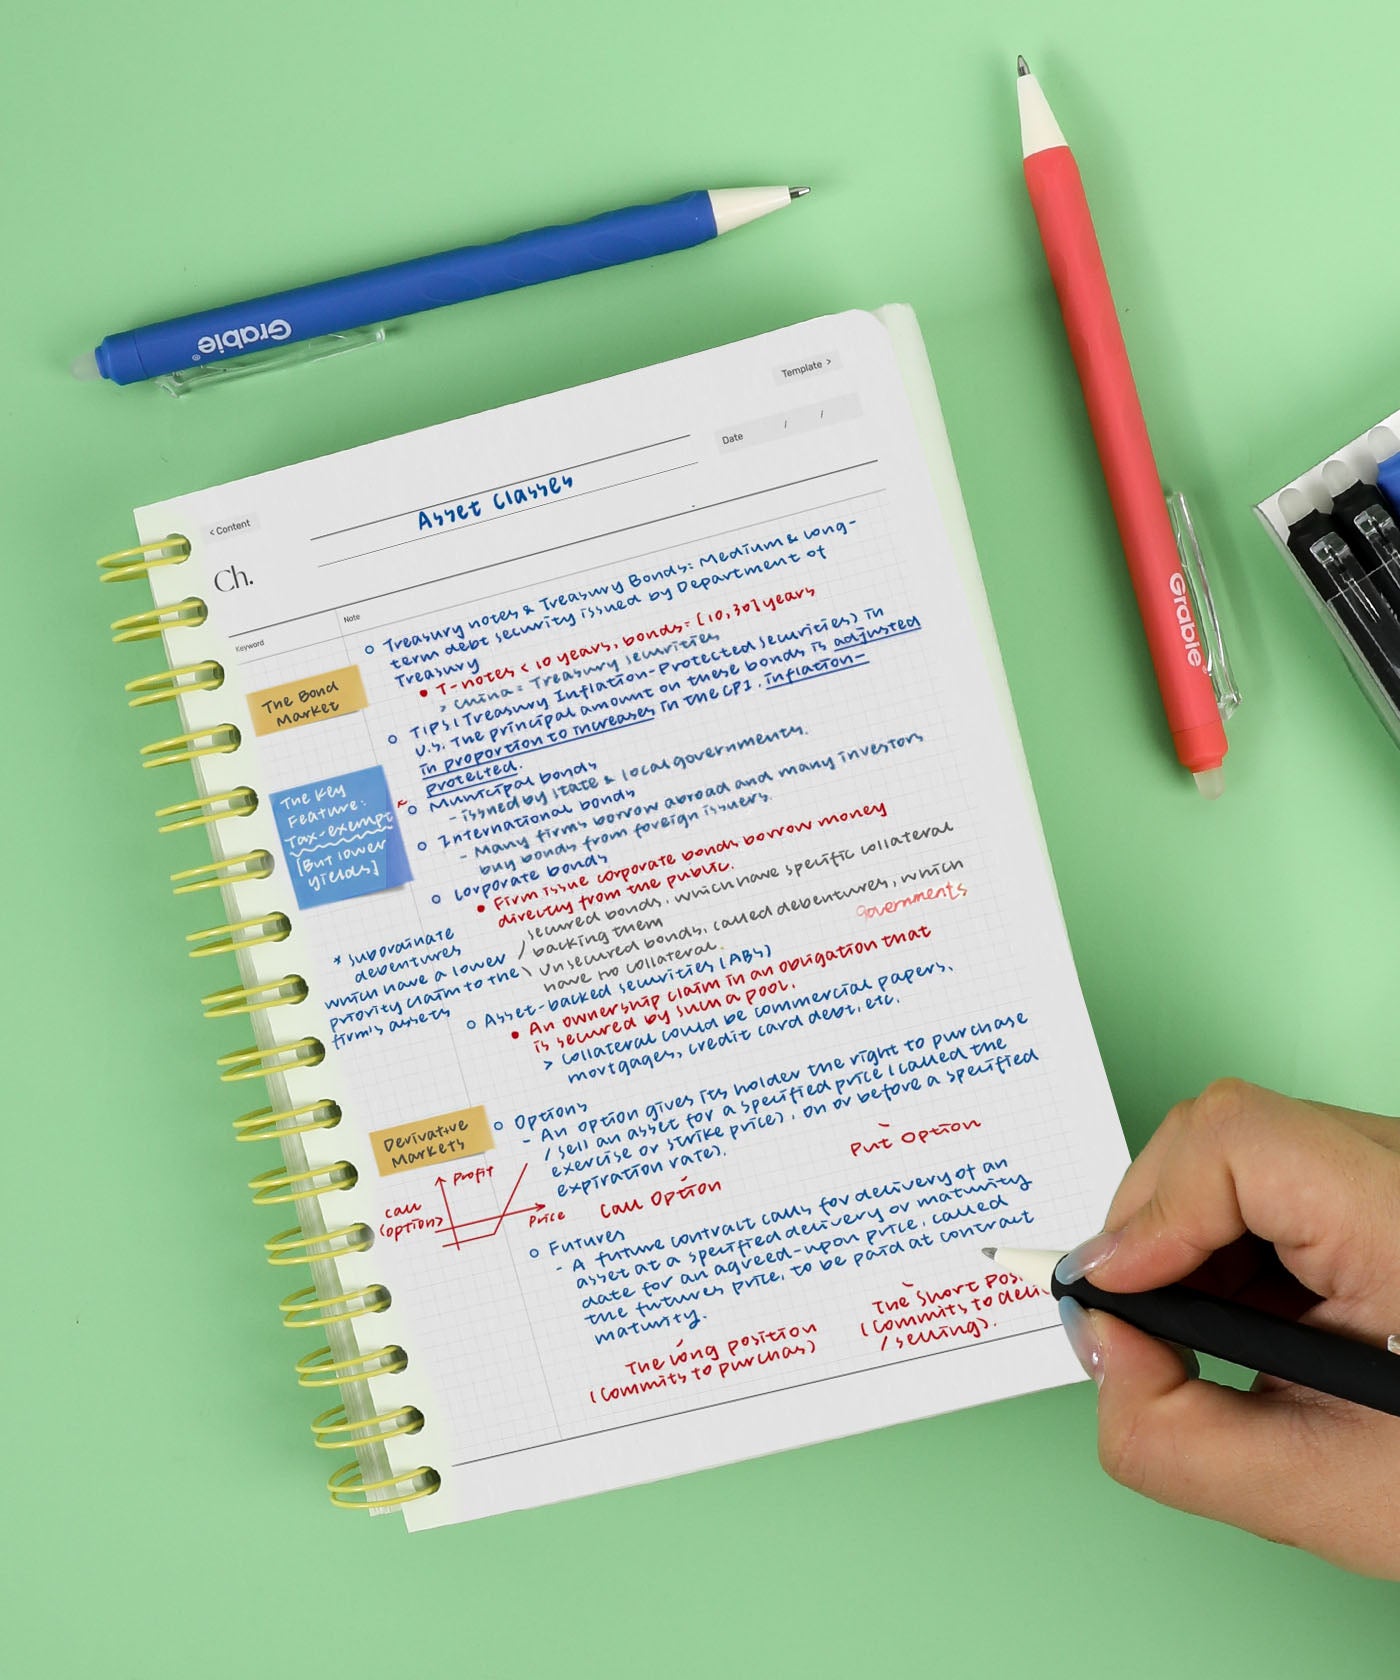 Grabie®
Grabie
Template >
Date / /
< Content
Asset Classes
Ch.
Keyword
Note
The Bond
Market
o Treasury notes & Treasury Bonds: Medium & long-
term debt security issued by Department of
Treasury
• T-notes < 10 years, bonds: [10,30] years
> China: Treasury securities
o TIPS: (Treasury Inflation-Protected Securities) in
U.S. The principal amount on these bonds is adjusted
in proportion to increases in the CPI. inflation-
protected.
The Key
Feature:
Tax-exempt
[But lower
yields]
o Municipal bonds
- issued by state & local governments.
o International bonds
- Many firms borrow abroad and many investors
buy bonds from foreign issuers.
o Corporate bonds
• Firm issue corporate bonds borrow money
directly from the public.
secured bonds, which have specific collateral
/ backing them
\ Unsecured bonds, called debentures, which
have no collateral.
governments
* subordinate
debentures
which have a lower
priority claim to the
firm's assets
o Asset-backed securities (ABS)
• An ownership claim in an obligation that
is secured by such a pool.
> collateral could be commercial papers,
mortgages, credit card debt, etc.
Derivative
Markets
o Options
- An option gives its holder the right to purchase
/sell an asset for a specified price (called the
exercise or strike price), on or before a specified
expiration rate).
Put Option
Call Option
Profit
call
(option)
Price
o Futures
- A future contract calls for delivery of an
asset at a specified delivery or maturity
date for an agreed-upon price, called
the futures price, to be paid at contract
maturity.
The long position
(commits to purchas)
The short pos
(commits to deli
/selling).